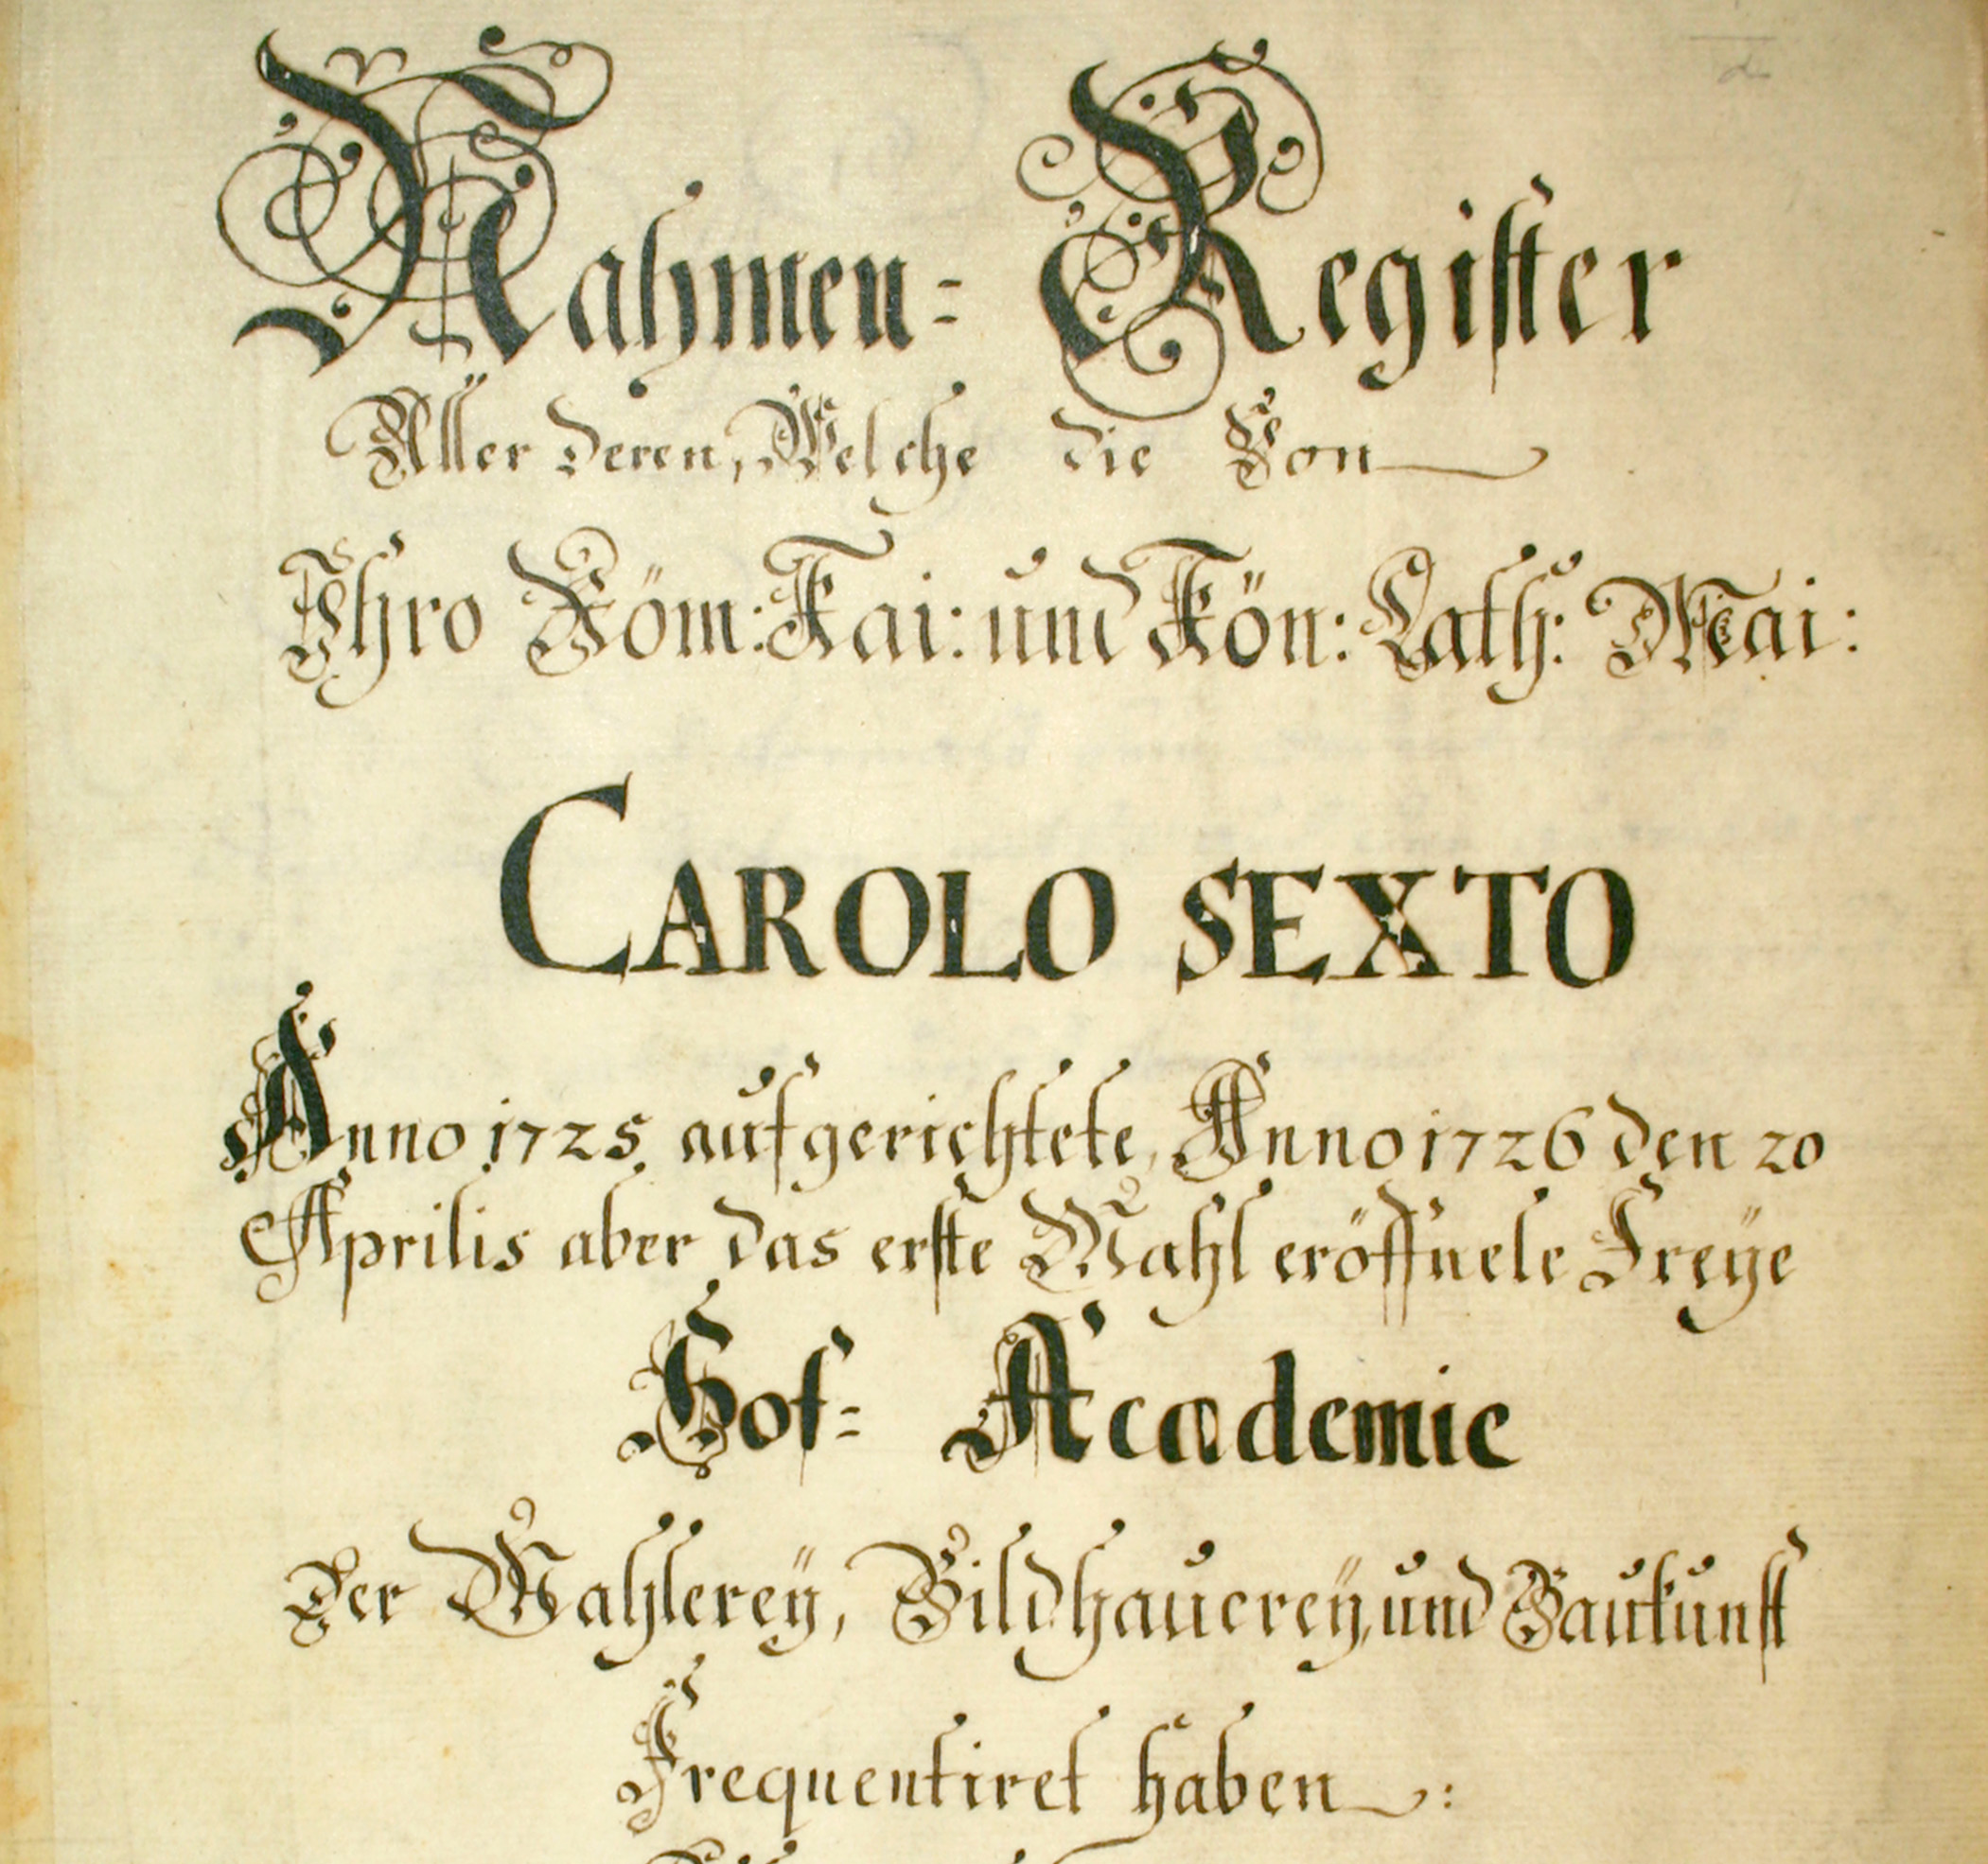 Nahmen= Register
Aller deren, Welche die Von
Ihro Röm: Kai: und Kön: Cath: Mai:
CAROLO SEXTO
Anno 1725 aufgerichtete, Anno 1726 den 20
Aprilis aber das erste Mahl eröffnete Freÿe
Hof= Academie
Der Mahlereÿ, Bildhauereÿ, und Baukunst
Frequentiret haben :